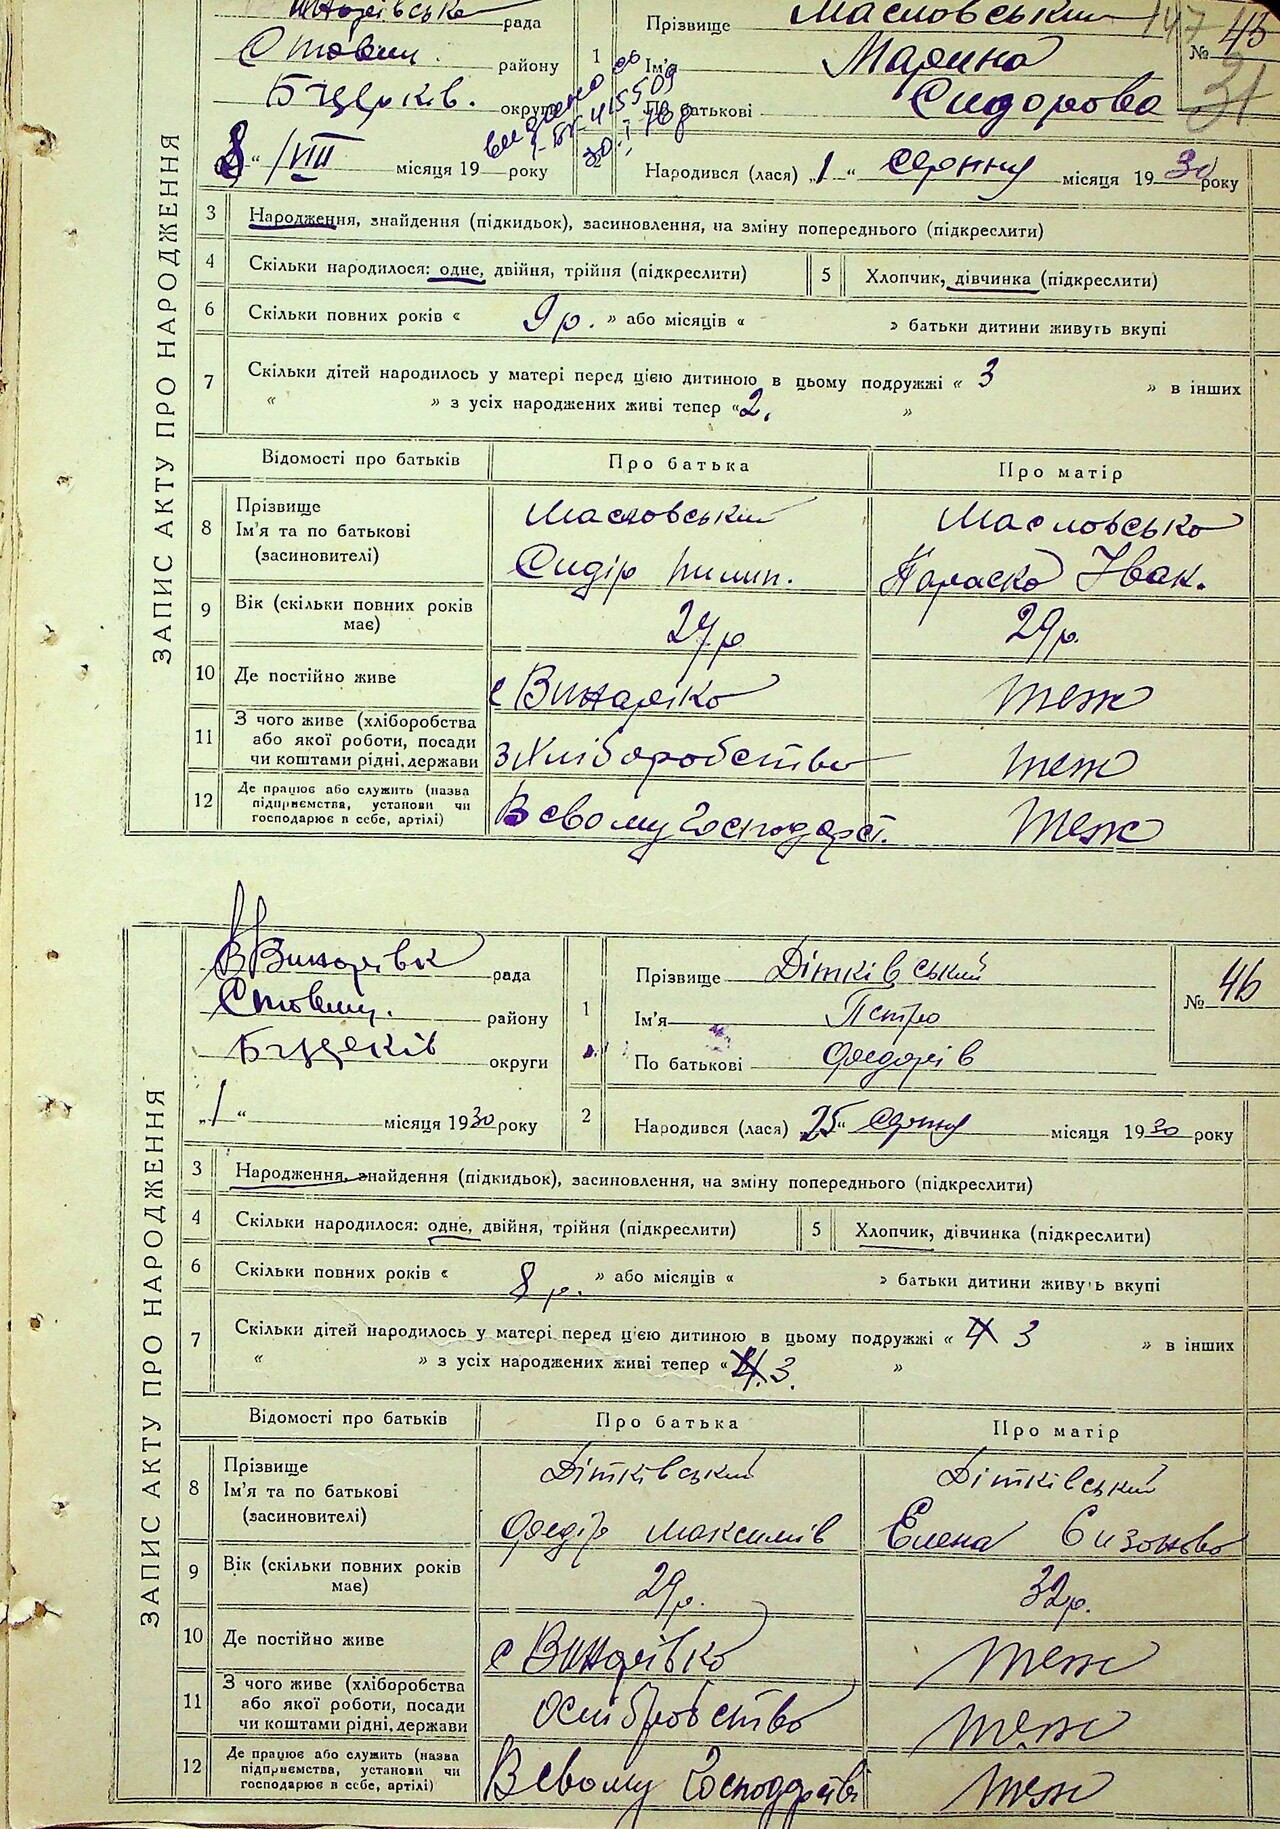 рада
Ставищ. району
Бцерків. округи
8 "/VIII місяця 19 року
видано св
I-БК 415509
30.I
147
Прізвище Масловський
1 Ім'я Марина
По батькові Сидорова
№ 45
31
Народився (лася) „1" серпня місяця 1930 року
ЗАПИС АКТУ ПРО НАРОДЖЕННЯ
3 Народження, знайдення (підкидьок), засиновлення, на зміну попереднього (підкреслити)
4 Скільки народилося: одне, двійня, трійня (підкреслити) 5 Хлопчик, дівчинка (підкреслити)
6 Скільки повних років « 9 р. » або місяців « » батьки дитини живуть вкупі
7 Скільки дітей народилось у матері перед цією дитиною в цьому подружжі « 3 » в інших
« » з усіх народжених живі тепер «2. »
Відомості про батьків Про батька Про матір
8 Прізвище Масловський Масловсько
Ім'я та по батькові
(засиновителі) Сидір Пилип. Параска Іван.
9 Вік (скільки повних років
має) 29р.
10 Де постійно живе с Винарівко теж
11 З чого живе (хліборобства
або якої роботи, посади
чи коштами рідні, держави з Хліборобства теж
12 Де працює або служить (назва
підприємства, установи чи
господарює в себе, артілі) В свому Господарст. теж
Винарівк рада
Ставищ. району
Бцрків округи
„1" місяця 1930 року
1 Прізвище Дітківський
Ім'я Петро
По батькові Федорів
№ 46
2 Народився (лася) „25" серпня місяця 1930 року
ЗАПИС АКТУ ПРО НАРОДЖЕННЯ
3 Народження, знайдення (підкидьок), засиновлення, на зміну попереднього (підкреслити)
4 Скільки народилося: одне, двійня, трійня (підкреслити) 5 Хлопчик, дівчинка (підкреслити)
6 Скільки повних років « 8 р. » або місяців « » батьки дитини живуть вкупі
7 Скільки дітей народилось у матері перед цією дитиною в цьому подружжі « 4 3 » в інших
« » з усіх народжених живі тепер « 4. 3. »
Відомості про батьків Про батька Про матір
8 Прізвище Дітківський Дітківський
Ім'я та по батькові
(засиновителі) Федір Максимів Елена Сизонова
9 Вік (скільки повних років
має) 29р. 32р.
10 Де постійно живе с Винарівко теж
11 З чого живе (хліборобства
або якої роботи, посади
чи коштами рідні, держави теж
12 Де працює або служить (назва
підприємства, установи чи
господарює в себе, артілі) В свому Господарстві теж